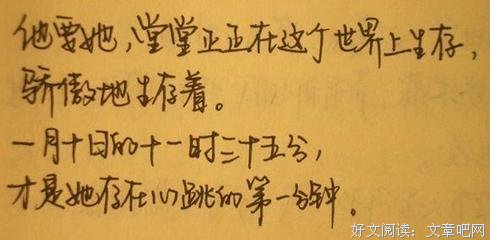 他要她，堂堂正正在这个世界上生存，
骄傲地生存着。
一月十日的十一时三十五分，
才是她存在心跳的第一分钟。
好文阅读：文章吧网